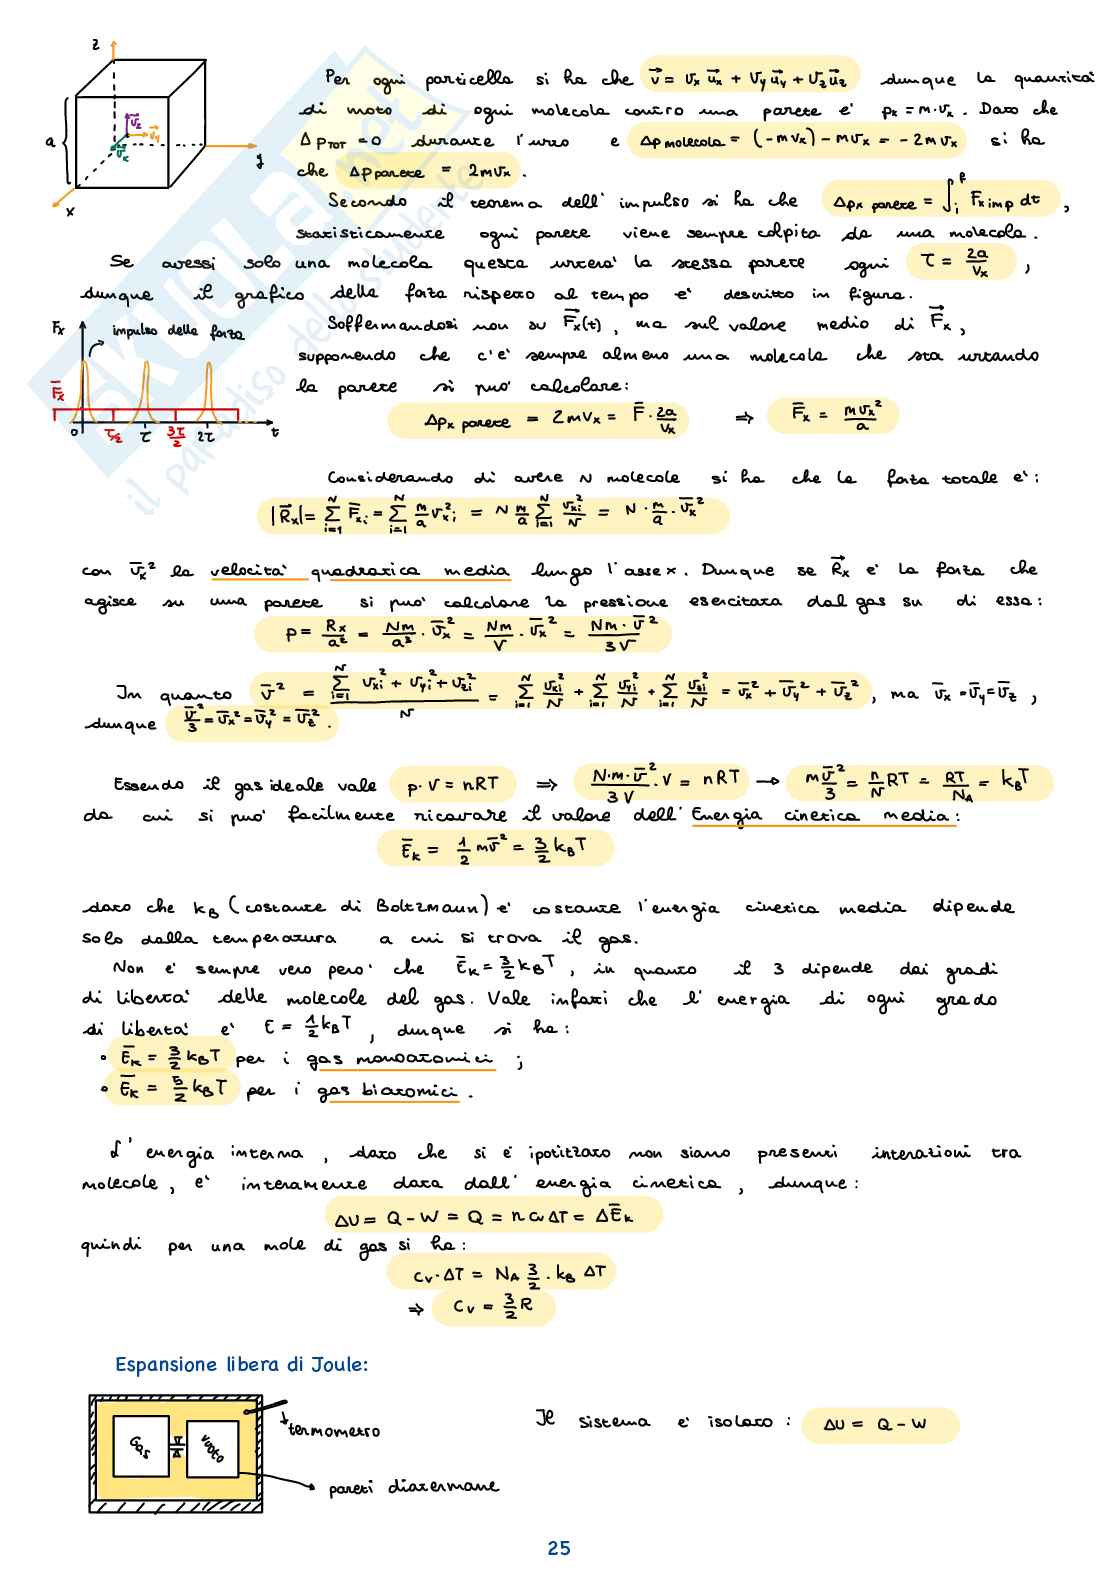 z
a
v⃗z
v⃗y
v⃗x
y
x
Per ogni particella si ha che v⃗ = vx u⃗x + vy u⃗y + vz u⃗z dunque la quantità
di moto di ogni molecola contro una parete è px = m·vx. Dato che
Δ pTOT = 0 durante l'urto e Δp molecola = (-mvx) - mvx = -2mvx si ha
che Δp parete = 2mvx.
Secondo il teorema dell'impulso si ha che Δpx parete = ∫i^f Fx imp dt,
statisticamente ogni parete viene sempre colpita da una molecola.
Se avessi solo una molecola questa urterà la stessa parete ogni τ = 2a/vx,
dunque il grafico della forza rispetto al tempo è descritto in figura.
Fx
impulso della forza
F̄x
0 τ/2 τ 3τ/2 2τ t
Soffermandosi non su F⃗x(t), ma sul valore medio di F⃗x,
supponendo che c'è sempre almeno una molecola che sta urtando
la parete si può calcolare:
Δpx parete = 2mvx = F̄ · 2a/vx ⇒ F̄x = mvx²/a
Considerando di avere N molecole si ha che la forza totale è:
|R⃗x| = Σi=1^N F̄xi = Σi=1^N m/a vxi² = N m/a Σi=1^N vxi²/N = N · m/a · v̄x²
con v̄x² la velocità quadratica media lungo l'asse x. Dunque se R⃗x è la forza che
agisce su una parete si può calcolare la pressione esercitata dal gas su di essa:
p = Rx/a² = Nm/a³ · v̄x² = Nm/V · v̄x² = Nm · v̄²/3V
In quanto v̄² = Σi=1^N vxi² + vyi² + vzi²/N = Σi=1^N vxi²/N + Σi=1^N vyi²/N + Σi=1^N vzi²/N = v̄x² + v̄y² + v̄z², ma v̄x = v̄y = v̄z,
dunque v̄²/3 = v̄x² = v̄y² = v̄z².
Essendo il gas ideale vale p·V = nRT ⇒ N·m·v̄²/3V · V = nRT → mv̄²/3 = n/N RT = RT/NA = kBT
da cui si può facilmente ricavare il valore dell'Energia cinetica media:
Ēk = 1/2 mv̄² = 3/2 kBT
dato che kB (costante di Boltzmann) è costante l'energia cinetica media dipende
solo dalla temperatura a cui si trova il gas.
Non è sempre vero però che Ēk = 3/2 kBT, in quanto il 3 dipende dai gradi
di libertà delle molecole del gas. Vale infatti che l'energia di ogni grado
di libertà è E = 1/2 kBT, dunque si ha:
• Ēk = 3/2 kBT per i gas monoatomici;
• Ēk = 5/2 kBT per i gas biatomici.
L'energia interna, dato che si è ipotizzato non siano presenti interazioni tra
molecole, è interamente data dall'energia cinetica, dunque:
ΔU = Q - W = Q = n cv ΔT = ΔĒk
quindi per una mole di gas si ha:
cv · ΔT = NA 3/2 · kB ΔT
⇒ cv = 3/2 R
Espansione libera di Joule:
Gas
vuoto
termometro
pareti diatermane
Il sistema è isolato: ΔU = Q - W
25
SKUOLA.net
il paradiso dello studente